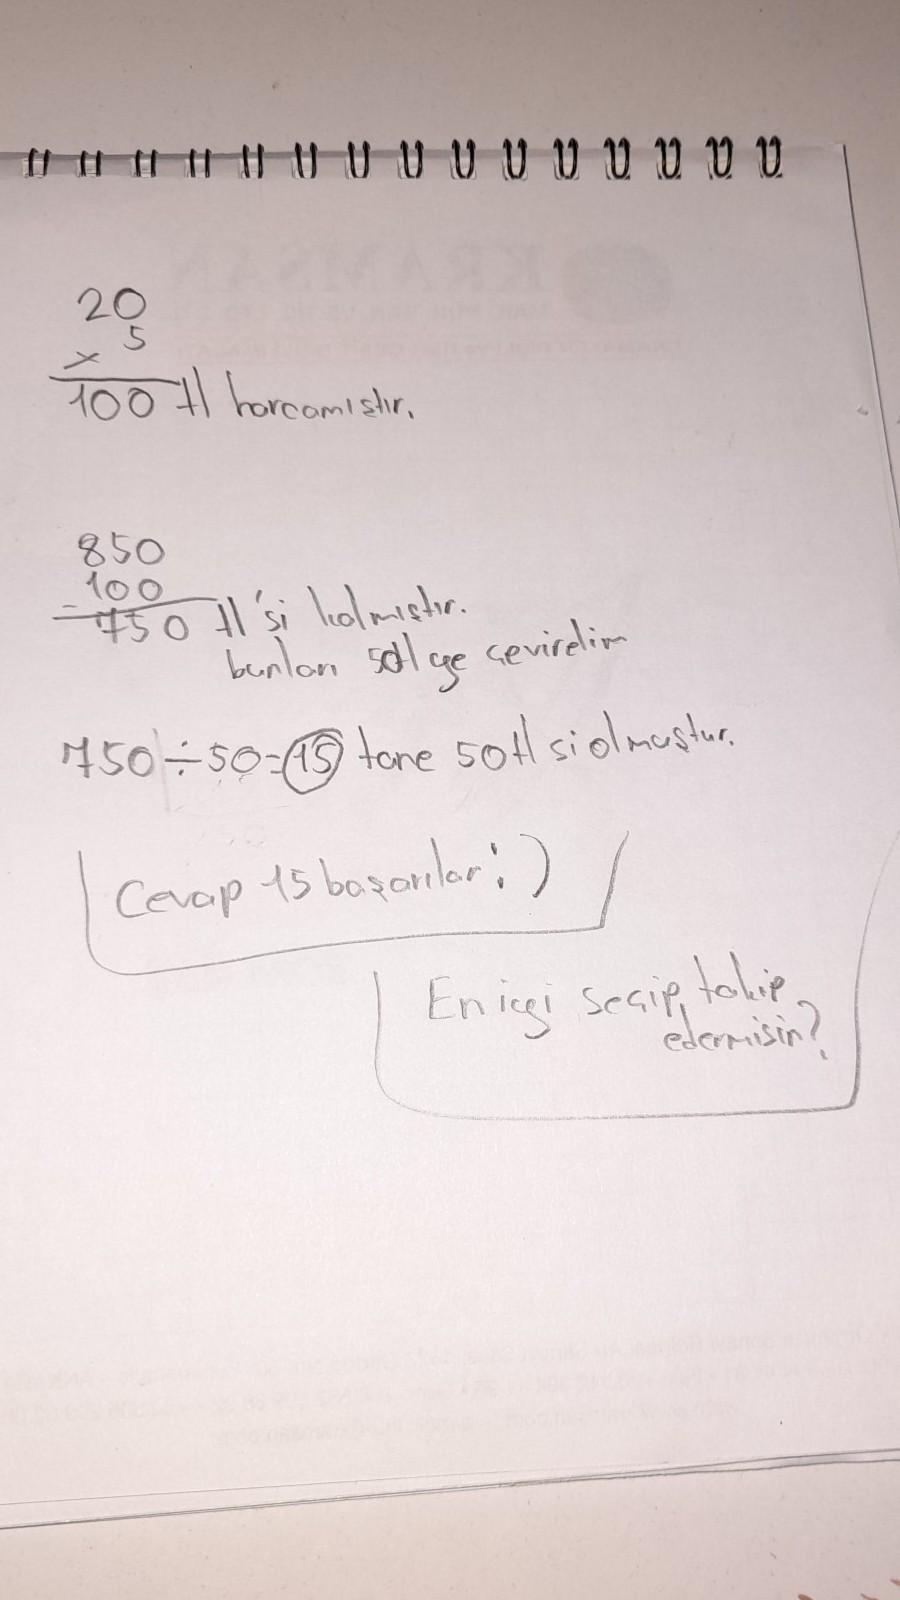 20
5
x
100 tl harcamıştır.
850
100
-
750 tl'si kalmıştır.
bunları 50tl ye çevirelim
750÷50=15 tane 50tl si olmuştur.
Cevap 15 başarılar :)
En iyi seçip, takip
edermisin?
KRAMSAN